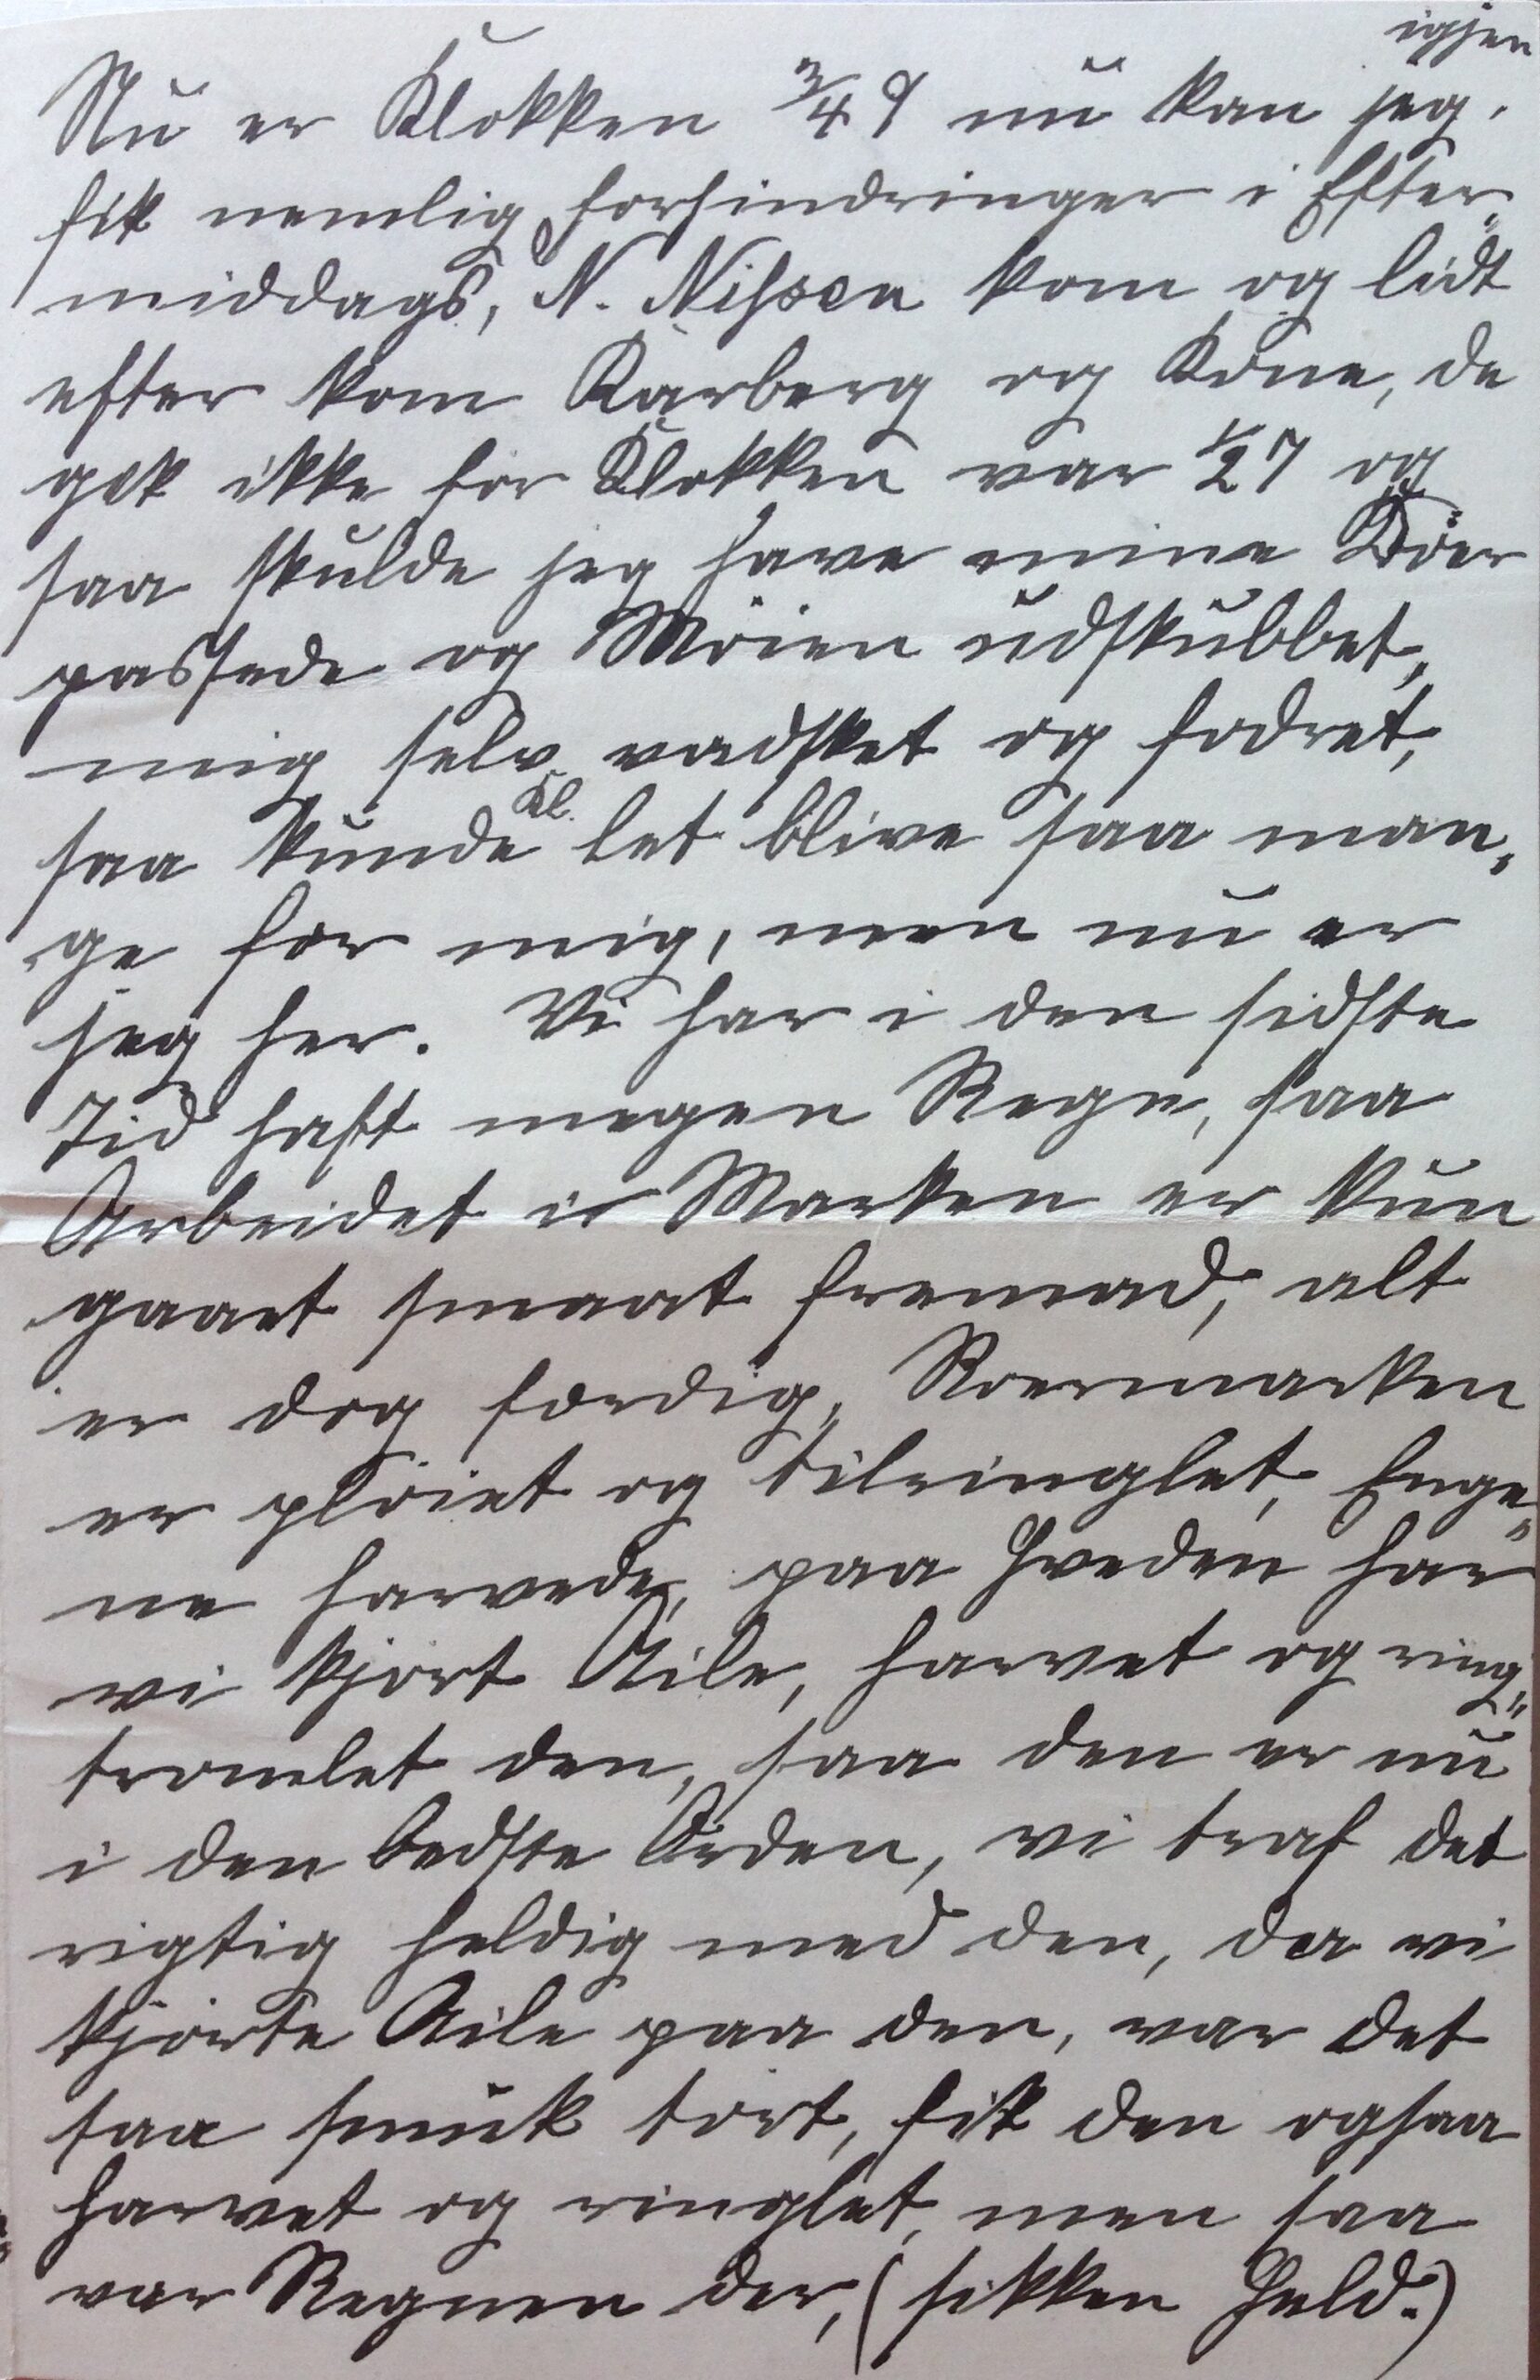 igjen
Nu er Klokken 3/4 9 nu kan jeg,
fik nemlig forhindringer i Efter„
middags, N. Nissen kom og lidt
efter kom Karberg og Kone, de
gik ikke for Klokken var 1/2 7 og
saa skulde jeg have mine Köer
passede og Möien udskubbet,
mig selv vadsket og fodret,
saa kunde Kl. let blive saa man„
ge for mig, men nu er
jeg her. Vi har i den sidste
Tid haft megen Regn, saa
Arbeidet i Marken er kun
gaaet smaat fremad, alt
er dog færdig, Roermarken
er plöiet og tilringlet, Enge„
ne harvede, paa Hveden har
vi kjört Aile, harvet og ring„
tromlet den, saa den er nu
i den bedste Orden, vi traf det
rigtig heldig med den, da vi
kjörte Aile paa den, var det
saa smuk tört, fik den ogsaa
harvet og ringlet, men saa
var Regnen der, (sikken Held.)